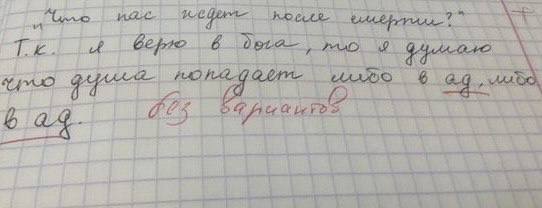 „Что нас ждет после смерти?"
Т.к. я верю в бога, то я думаю
что душа попадает либо в ад, либо
в ад. без вариантов